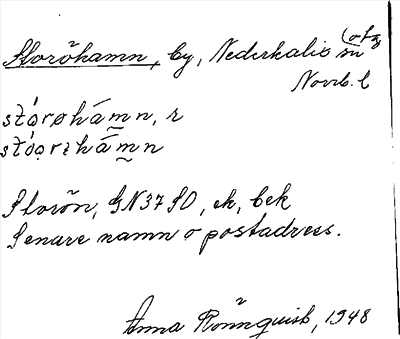 Storöhamn, by, Nederkalix sn
Norrb. l
stọ́røhá̰mn, r
stọ́ọrɩhá̰mn
Storön, GN 37 SO, ek, bek
Senare namn o postadress.
Anna Rönnquist, 1948